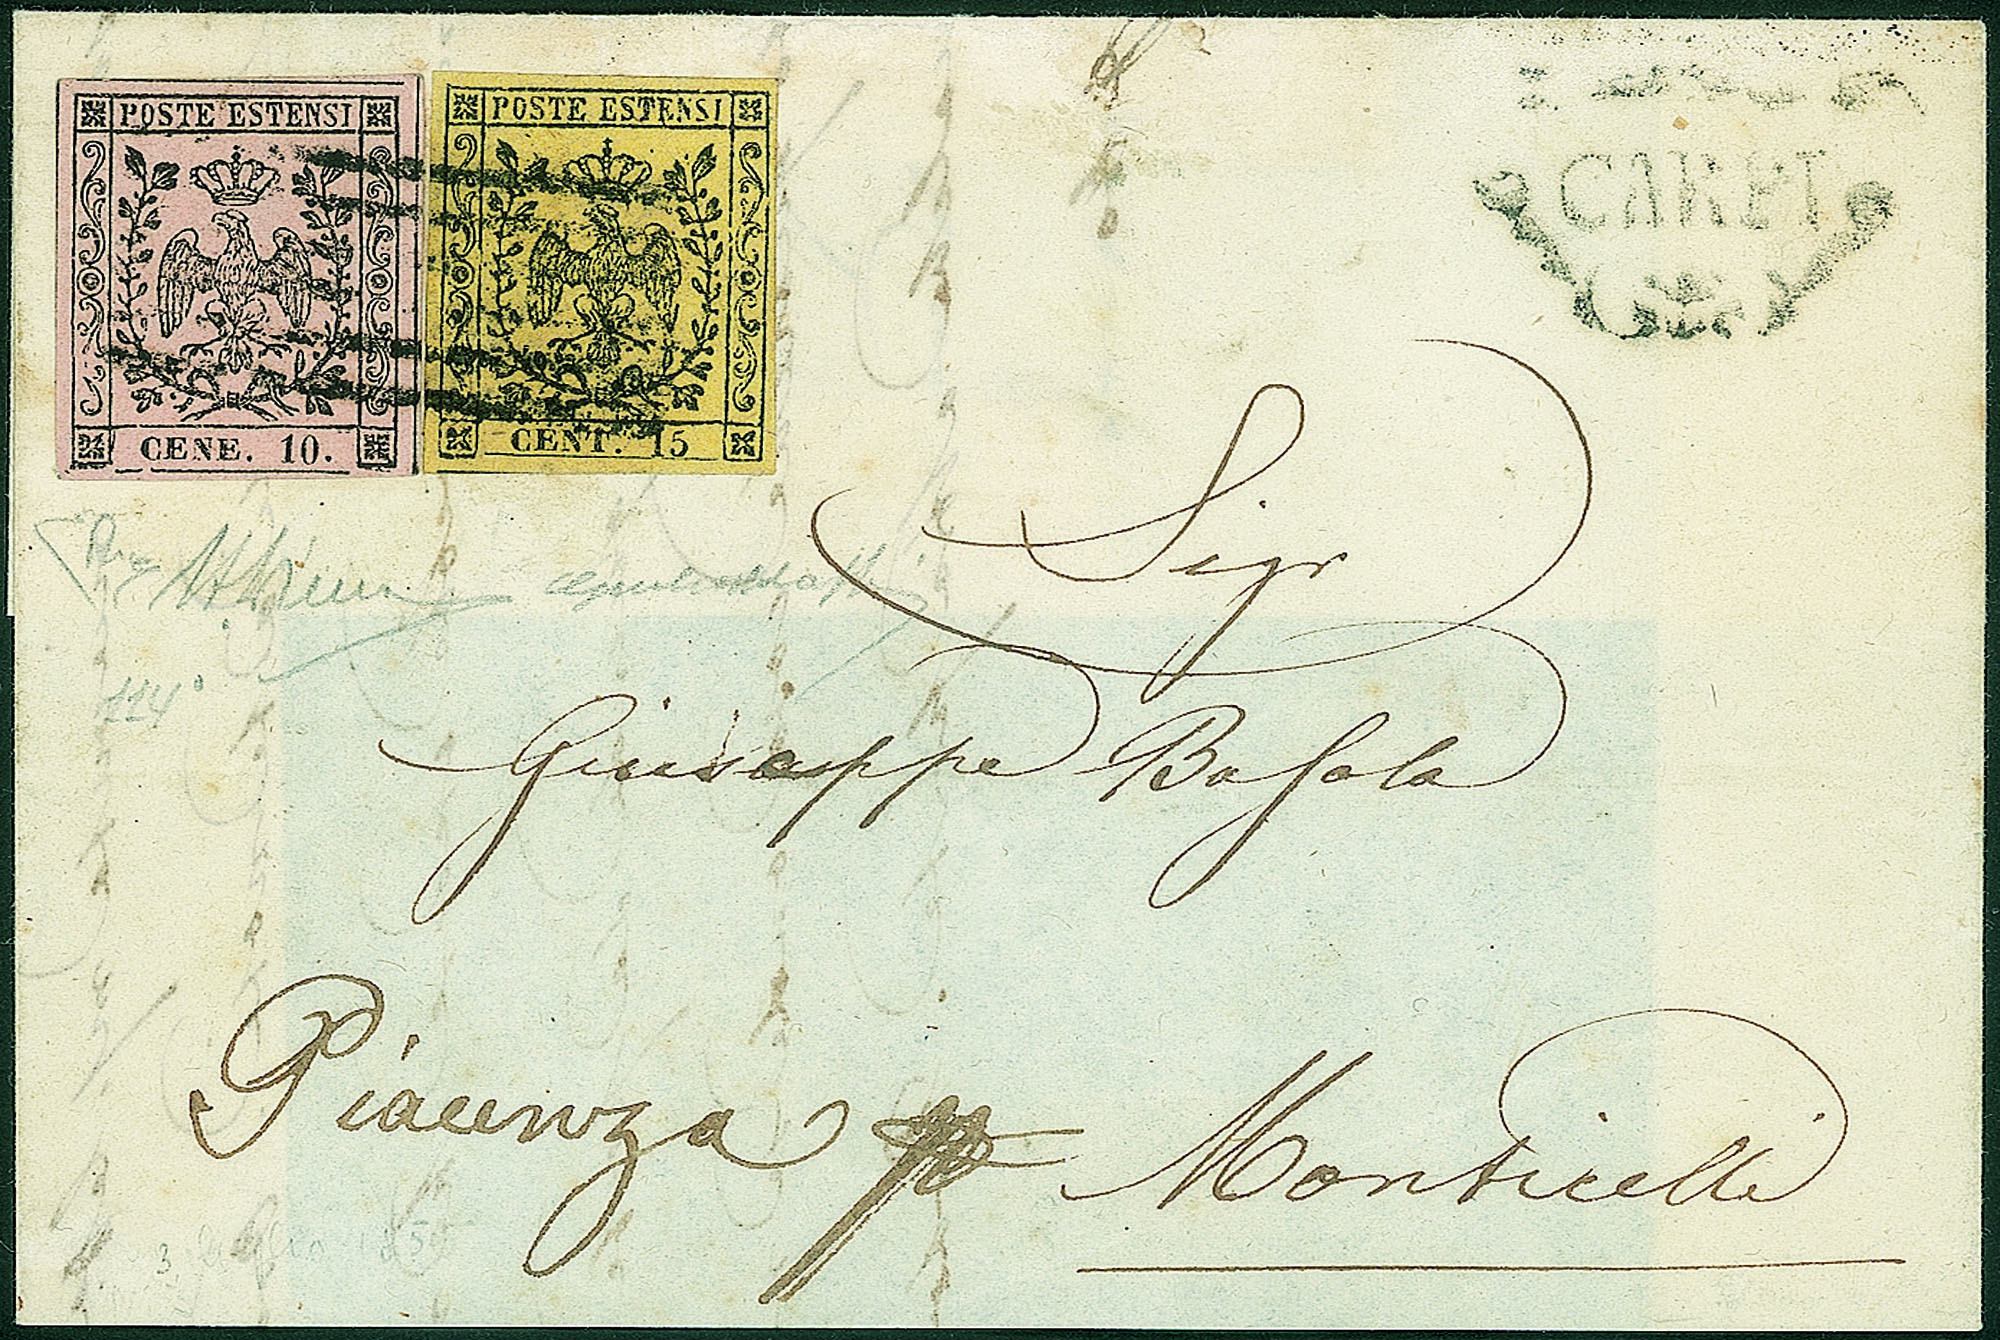 POSTE ESTENSI
CENE. 10.
POSTE ESTENSI
CENT. 15
CARPI
Sigr
Giuseppe Basola
Piacenza pp Monticelli
114
3 Luglio 185